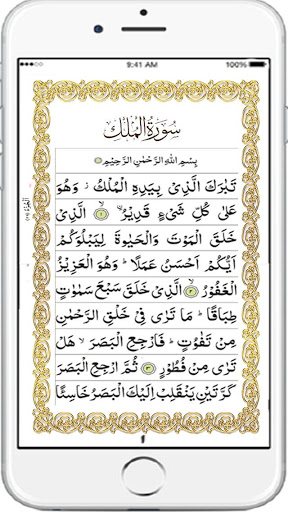 9:41 AM 100%
سُوْرَةُ الْمُلْكِ
بِسْمِ اللّٰهِ الرَّحْمٰنِ الرَّحِيْمِ
تَبٰرَكَ الَّذِىْ بِيَدِهِ الْمُلْكُ ۫ وَهُوَ
عَلٰى كُلِّ شَىْءٍ قَدِيْرُ ۙ ۝۱ الَّذِىْ
خَلَقَ الْمَوْتَ وَالْحَيٰوةَ لِيَبْلُوَكُمْ
اَيُّكُمْ اَحْسَنُ عَمَلًا ؕ وَهُوَ الْعَزِيْزُ
الْغَفُوْرُ ۙ ۝۲ الَّذِىْ خَلَقَ سَبْعَ سَمٰوٰتٍ
طِبَاقًا ؕ مَا تَرٰى فِىْ خَلْقِ الرَّحْمٰنِ
مِنْ تَفٰوُتٍ ؕ فَارْجِعِ الْبَصَرَ ۙ هَلْ
تَرٰى مِنْ فُطُوْرٍ ۝۳ ثُمَّ ارْجِعِ الْبَصَرَ
كَرَّتَيْنِ يَنْقَلِبْ اِلَيْكَ الْبَصَرُ خَاسِئًا